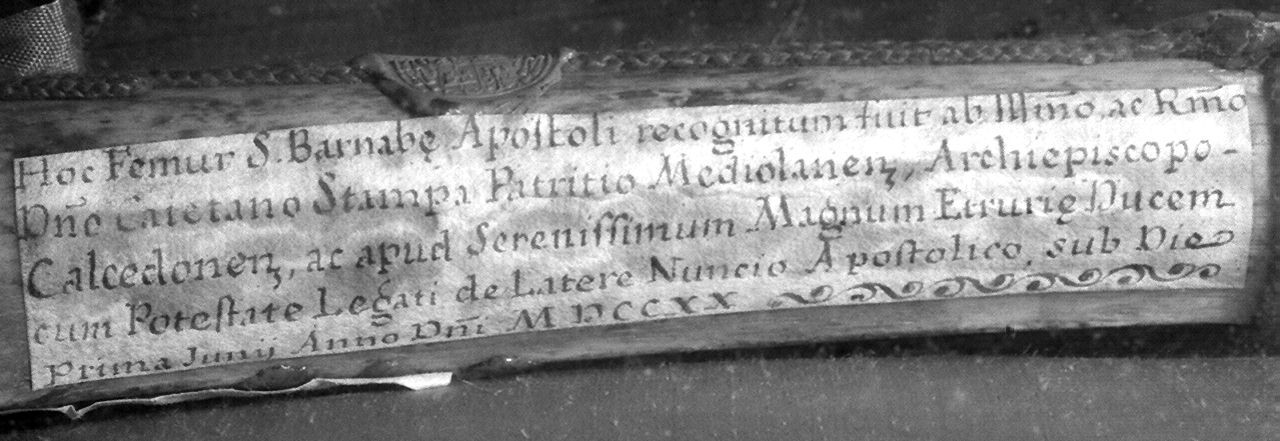 Hoc Femur S. Barnabę Apoſtoli recognitum fuit ab Illm̃o, ac Rm̃o
Dño Caietano Stampa Patritio Mediolanenȝ, Archiepiscopo-
Calcedonenȝ, ac apud Sereniſſimum Magnum Etrurię Ducem
cum Poteſtate Legati de Latere Nuncio Apoſtolico, sub Die
Prima Junij Anño Dñi MDCCXX